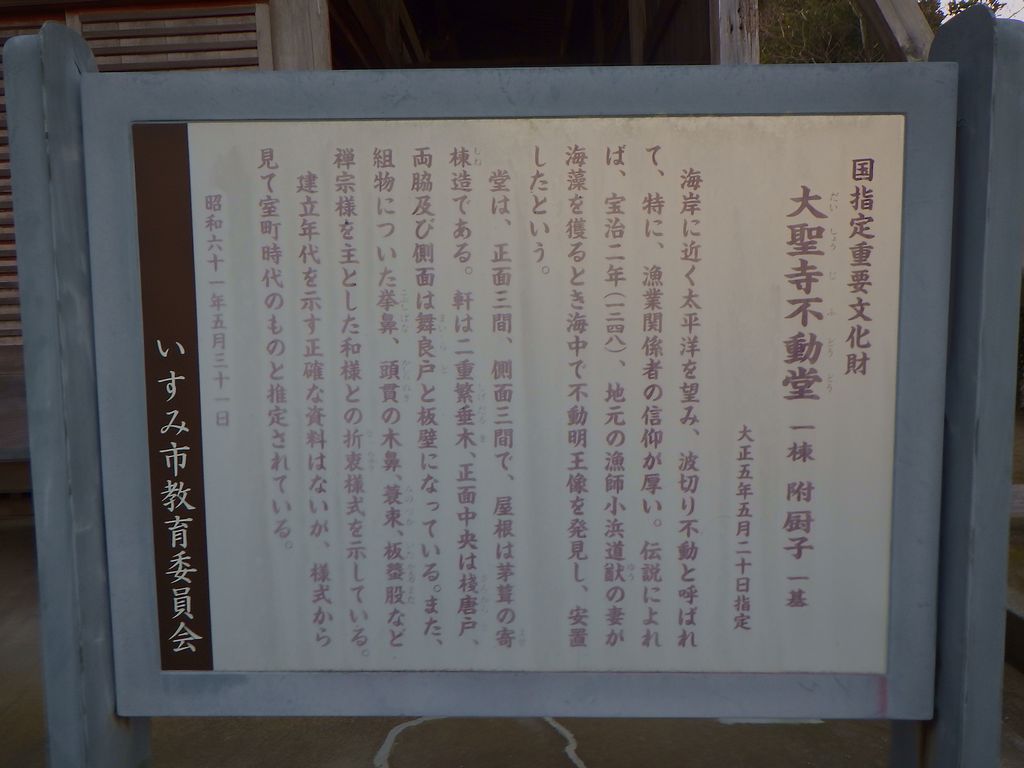 国指定重要文化財
大聖寺不動堂 一棟 附厨子 一基
大正五年五月二十日指定
海岸に近く太平洋を望み、波切り不動と呼ばれ
て、特に、漁業関係者の信仰が厚い。伝説によれ
ば、宝治二年(一二四八)、地元の漁師小浜道猷の妻が
海藻を獲るとき海中で不動明王像を発見し、安置
したという。
堂は、正面三間、側面三間で、屋根は茅葺の寄
棟造である。軒は二重繁垂木、正面中央は桟唐戸、
両脇及び側面は舞良戸と板壁になっている。また、
組物についた拳鼻、頭貫の木鼻、蓑束、板蟇股など
禅宗様を主とした和様との折衷様式を示している。
建立年代を示す正確な資料はないが、様式から
見て室町時代のものと推定されている。
昭和六十一年五月三十一日
いすみ市教育委員会